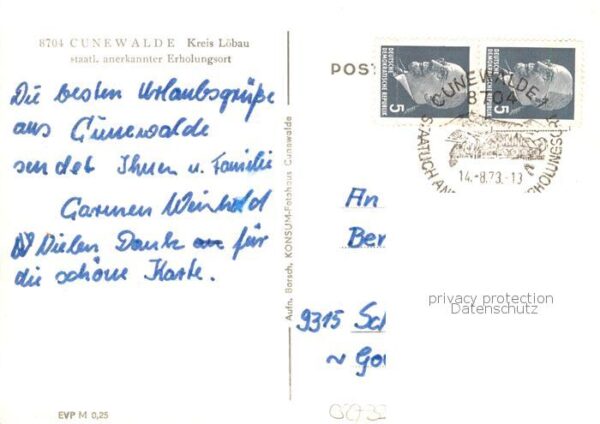 8704 CUNEWALDE Kreis Löbau
staatl. anerkannter Erholungsort
Die besten Urlaubsgrüße
aus Cunewalde
sendet Ihnen u. Familie
Carmen Weinhold
Vielen Dank für
die schöne Karte.
EVP M 0,25
Aufn. Borsch, KONSUM-Fotohaus Cunewalde
POST
DEUTSCHE
DEMOKRATISCHE REPUBLIK
5
DEUTSCHE
DEMOKRATISCHE REPUBLIK
5
CUNEWALDE
8704
STAATLICH AN
RHOLUNGSO
14.-8.73.-13
An
Ber
9315 Sch
privacy protection
Datenschutz